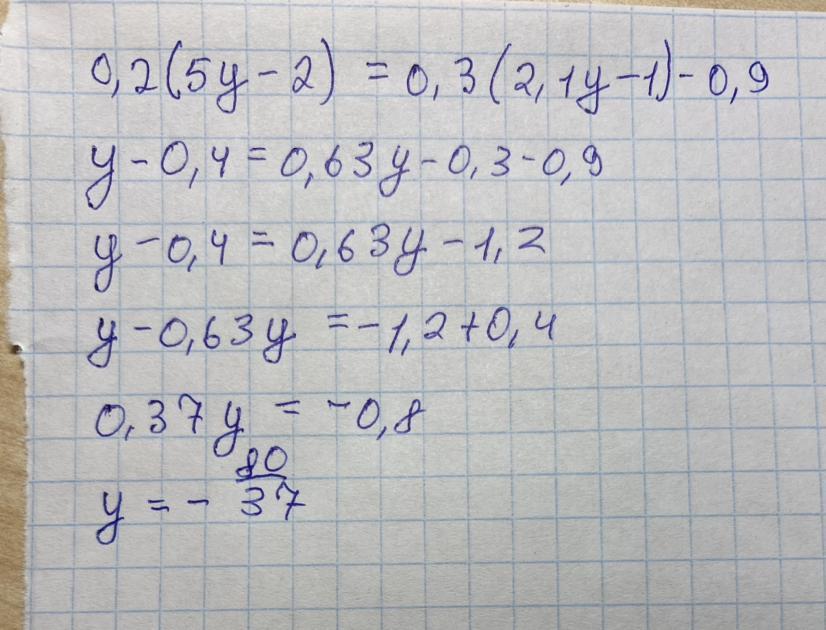 0,2(5y-2) = 0,3(2,1y-1)-0,9
y-0,4=0,63y-0,3-0,9
y-0,4=0,63y-1,2
y-0,63y =-1,2+0,4
0,37y = -0,8
y = - 80/37